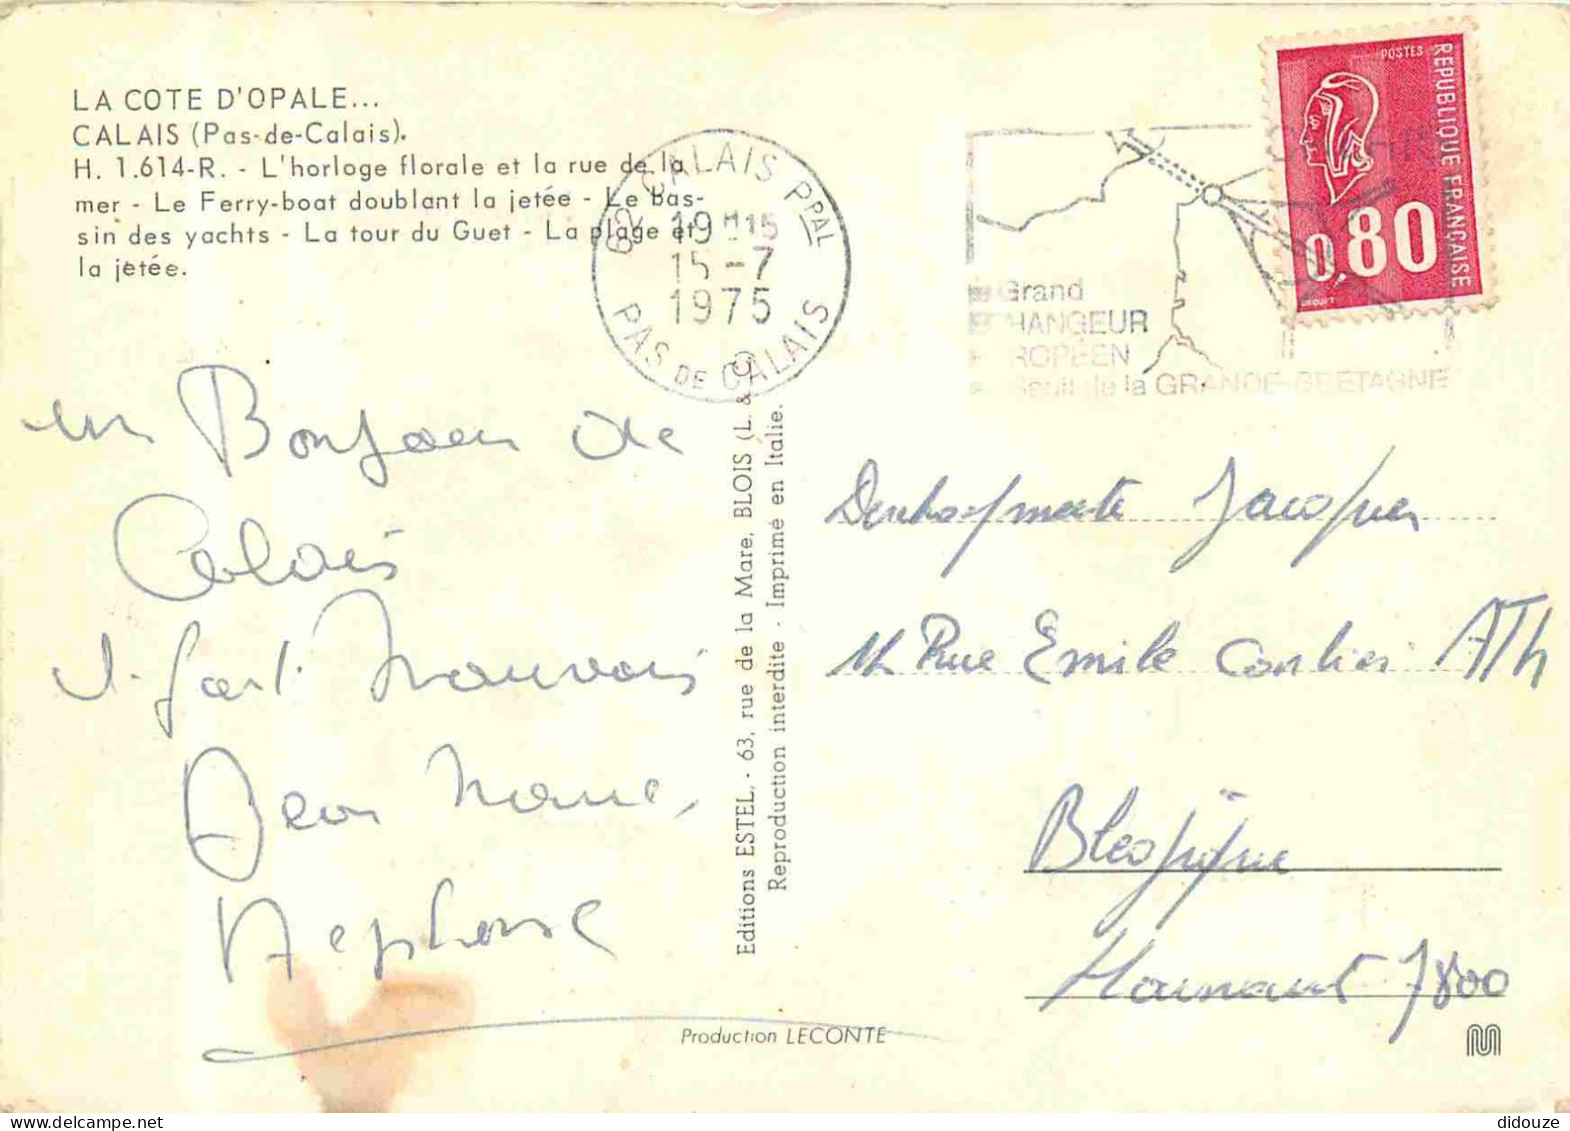 LA COTE D'OPALE...
CALAIS (Pas-de-Calais).
H. 1.614-R. - L'horloge florale et la rue de la
mer - Le Ferry-boat doublant la jetée - Le bas-
sin des yachts - La tour du Guet - La plage et
la jetée.
62 CALAIS PPAL
19H15
15-7
1975
PAS DE CALAIS
Grand
HANGEUR
ROPÉEN
de la GRANDE-BRETAGNE
POSTES
REPUBLIQUE FRANÇAISE
0,80
un Bonjour de
Calais
il fait Mauvais
Jean Marie,
Alphonse
Editions ESTEL, - 63, rue de la Mare, BLOIS (L. &
Reproduction interdite - Imprimé en Italie.
Jacques
Rue Emile ATh
Belgique
Hainaut 7800
Production LECONTE
didouze
delcampe.net